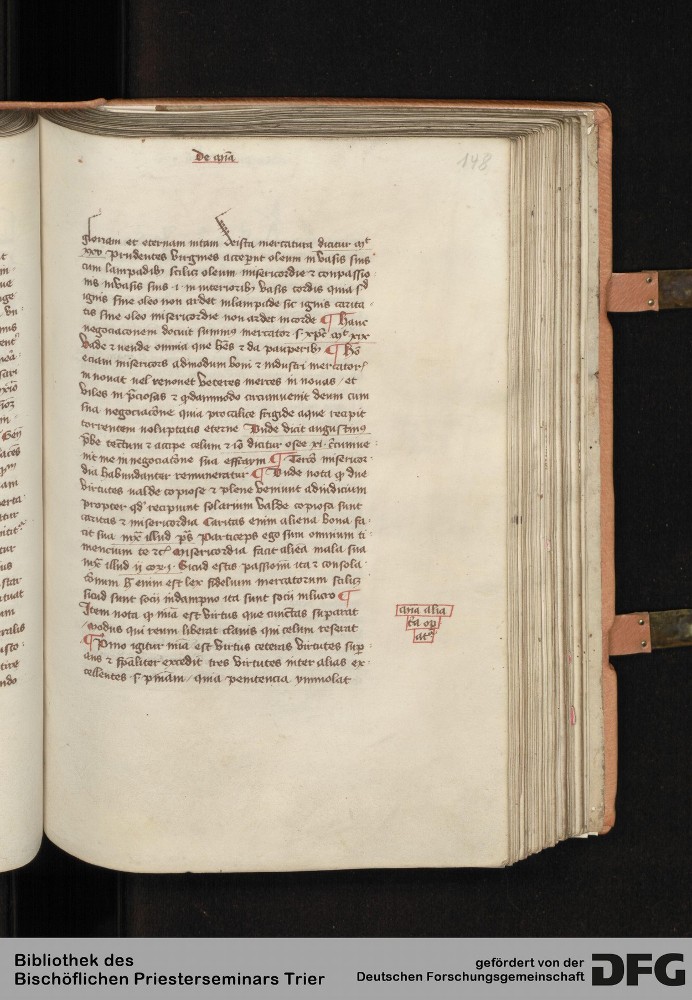 De mīa
148
gloriam et eternam vitam De ista mercatura dicitur mᵗ
xxv Prudentes virgines acceperūt oleum in vasis suis
cum lampadibȝ scilicet oleum misericordie ⁊ conpassio
nis in vasis suis .i. in interioribȝ vasis cordis quia sᵈ
ignis sine oleo non ardet in lampade sic ignis carita
tis sine oleo misericordie non ardet in corde ¶ Hanc
negociacionem docuit summus mercator .s. xpc mᵗ xix
Vade ⁊ vende omnia que hēs ⁊ da pauperibȝ ¶ Hō
eciam misericors admodum boni ⁊ industri mercatoris
innouat vel renouet veteres merces in nouas / et
viles in preciosas ⁊ quodammodo circumuenit deum cum
sua negociacōne quia pro calice frigide aque recipit
torrentem voluptatis eterne Vnde dicit augustinus
prebe tectum ⁊ accipe celum ⁊ iō dicitur osee xi circumue
nit me in negociacōne sua effraym ¶ Tercō misericor
dia habundanter remuneratur ¶ Vnde nota ꝙ due
virtutes valde copiose ⁊ plene veniunt ad iudicium
propter qd recipiunt solarium valde copiosa sunt
caritas ⁊ misericordia Caritas enim aliena bona fa
cit sua iuxᵃ illud ps Particeps ego sum omnium ti
mencium te ⁊c̄ Misericordia facit aliena mala sua
iuxᵃ illud ii cor .i. Sicud estis passionū ita ⁊ consola
cōnum hᵉ enim est lex fidelium mercatorum scilicet
sicud sunt socii in dampno ita sunt socii in lucro ¶
Item nota ꝙ mīa est virtus que cunctas superat
/ modus qui reum liberat clauis qui celum reserat
¶ Primo igitur mīa est virtus ceteras virtutes super
ans ⁊ spāliter excedit tres virtutes inter alias ex-
cellentes .s. pniam / quia penitencia ymmolat
alia
Bibliothek des
Bischöflichen Priesterseminars Trier
gefördert von der
Deutschen Forschungsgemeinschaft
DFG